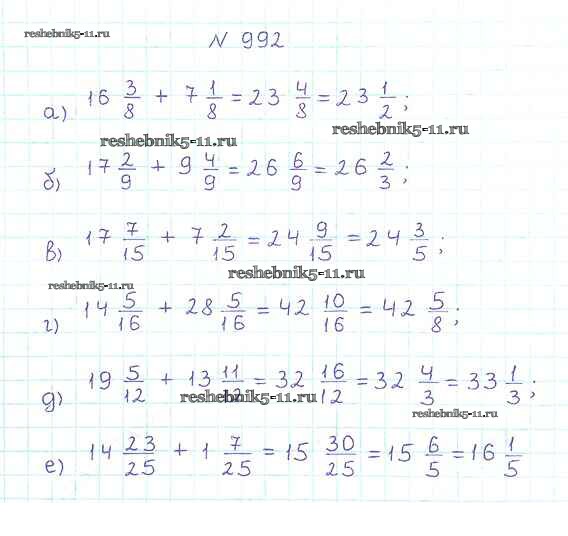 reshebnik5-11.ru
N 992
а) 16 3/8 + 7 1/8 = 23 4/8 = 23 1/2 ;
reshebnik5-11.ru
reshebnik5-11.ru
б) 17 2/9 + 9 4/9 = 26 6/9 = 26 2/3 ;
в) 17 7/15 + 7 2/15 = 24 9/15 = 24 3/5 ;
reshebnik5-11.ru
reshebnik5-11.ru
г) 14 5/16 + 28 5/16 = 42 10/16 = 42 5/8 ;
д) 19 5/12 + 13 11/12 = 32 16/12 = 32 4/3 = 33 1/3 ;
reshebnik5-11.ru
reshebnik5-11.ru
е) 14 23/25 + 1 7/25 = 15 30/25 = 15 6/5 = 16 1/5